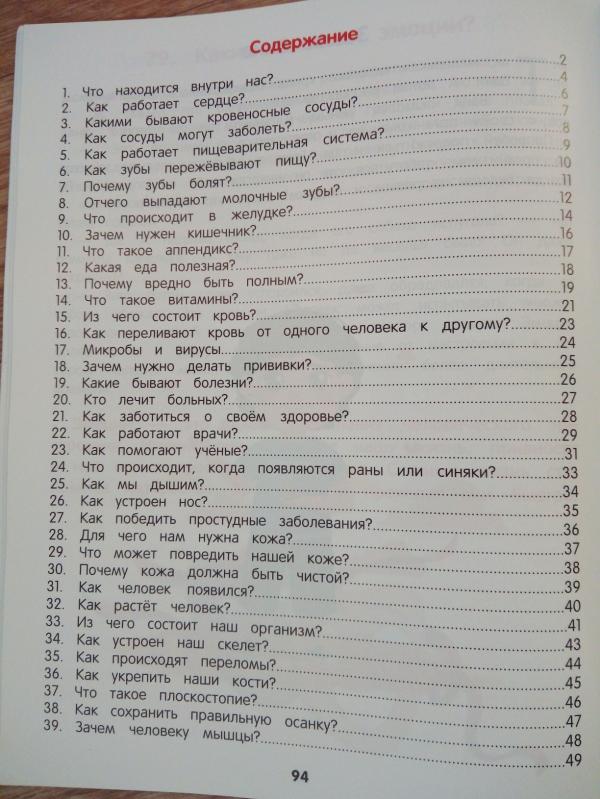 Содержание
1. Что находится внутри нас?..........2
2. Как работает сердце?..........4
3. Какими бывают кровеносные сосуды?..........6
4. Как сосуды могут заболеть?..........7
5. Как работает пищеварительная система?..........8
6. Как зубы пережёвывают пищу?..........9
7. Почему зубы болят?..........10
8. Отчего выпадают молочные зубы?..........11
9. Что происходит в желудке?..........12
10. Зачем нужен кишечник?..........14
11. Что такое аппендикс?..........16
12. Какая еда полезная?..........17
13. Почему вредно быть полным?..........18
14. Что такое витамины?..........19
15. Из чего состоит кровь?..........21
16. Как переливают кровь от одного человека к другому?..........23
17. Микробы и вирусы..........24
18. Зачем нужно делать прививки?..........25
19. Какие бывают болезни?..........26
20. Кто лечит больных?..........27
21. Как заботиться о своём здоровье?..........28
22. Как работают врачи?..........29
23. Как помогают учёные?..........31
24. Что происходит, когда появляются раны или синяки?..........33
25. Как мы дышим?..........34
26. Как устроен нос?..........35
27. Как победить простудные заболевания?..........36
28. Для чего нам нужна кожа?..........37
29. Что может повредить нашей коже?..........38
30. Почему кожа должна быть чистой?..........39
31. Как человек появился?..........40
32. Как растёт человек?..........41
33. Из чего состоит наш организм?..........43
34. Как устроен наш скелет?..........44
35. Как происходят переломы?..........45
36. Как укрепить наши кости?..........46
37. Что такое плоскостопие?..........47
38. Как сохранить правильную осанку?..........48
39. Зачем человеку мышцы?..........49
94